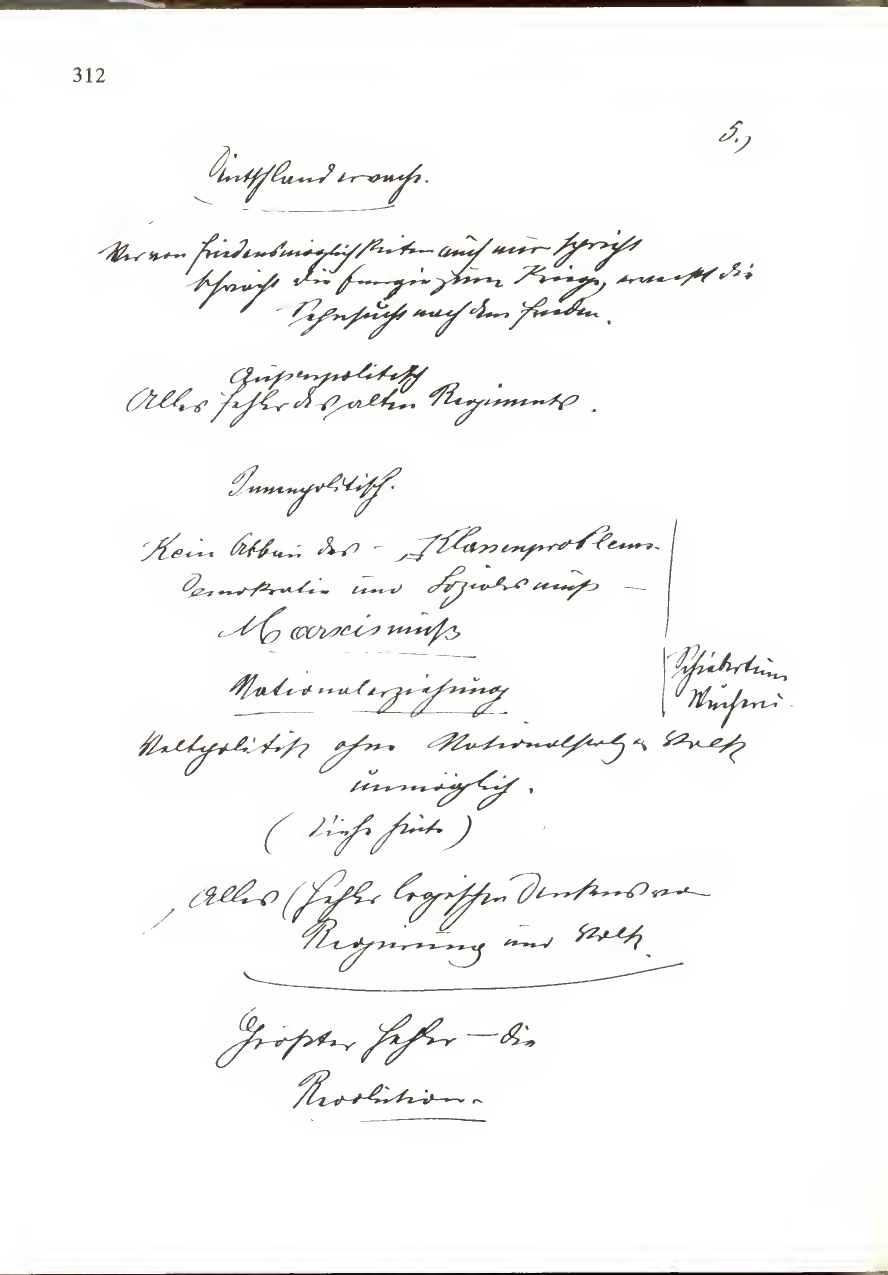 312
5.)
Deutschland erwache.
Wer von Friedensmöglichkeiten auch nur spricht
schwächt die Energie zum Kriege, erweckt die
Sehnsucht nach dem Frieden.
Außenpolitisch
Alles Fehler des alten Regiments.
Innenpolitisch.
Kein Abbau des – „Klassenproblems-
Demokratie und Sozialismuß —
Marxismuß
Schiebertum
Nationalerziehung
Wucherei.
Weltpolitik ohne Nationalstolz Volk
unmöglich.
(Siehe heute)
Alles (Fehler logischen Denkens von
Regierung und Volk.
Größter Fehler — die
Revolution.